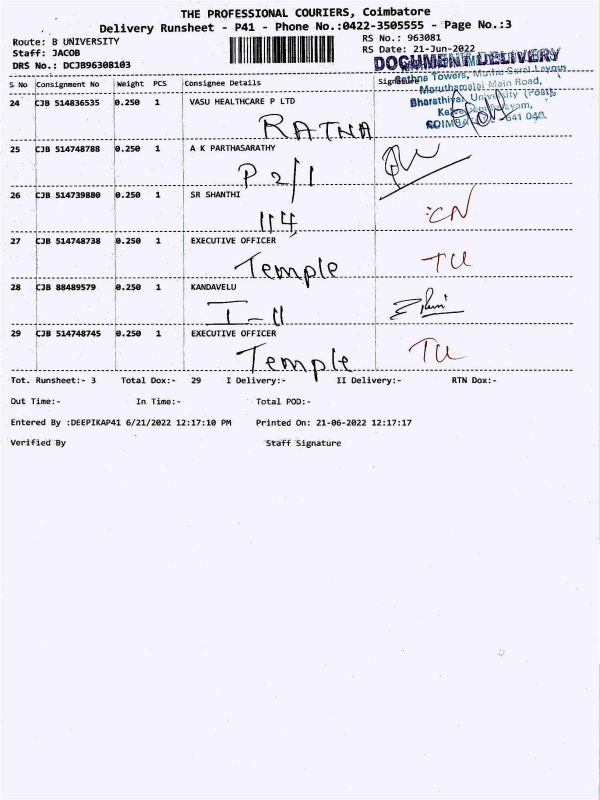 THE PROFESSIONAL COURIERS, Coimbatore
Delivery Runsheet - P41 - Phone No.:0422-3505555 - Page No.:3
Route: B UNIVERSITY RS No.: 963081
Staff: JACOB RS Date: 21-Jun-2022
DRS No.: DCJB96308103 DOCUMENT DELIVERY
S No Consignment No Weight PCS Consignee Details Signature
Towers,
Maruthamalai Main Road,
Bharathiyar University (Post),
641 046
24 CJB 514836535 0.250 1 VASU HEALTHCARE P LTD
RATNA
25 CJB 514748788 0.250 1 A K PARTHASARATHY
P 2/1
26 CJB 514739880 0.250 1 SR SHANTHI
114 CN
27 CJB 514748738 0.250 1 EXECUTIVE OFFICER
Temple TU
28 CJB 88489579 0.250 1 KANDAVELU
I-11
29 CJB 514748745 0.250 1 EXECUTIVE OFFICER
Temple TU
Tot. Runsheet:- 3 Total Dox:- 29 I Delivery:- II Delivery:- RTN Dox:-
Out Time:- In Time:- Total POD:-
Entered By :DEEPIKAP41 6/21/2022 12:17:10 PM Printed On: 21-06-2022 12:17:17
Verified By Staff Signature